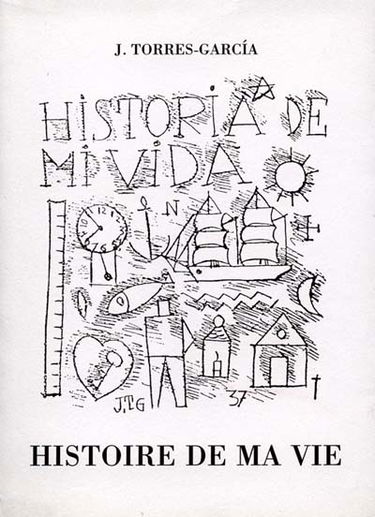 J. TORRES-GARCÍA
HISTORIA DE
MI VIDA
N
J.TG
37
HISTOIRE DE MA VIE